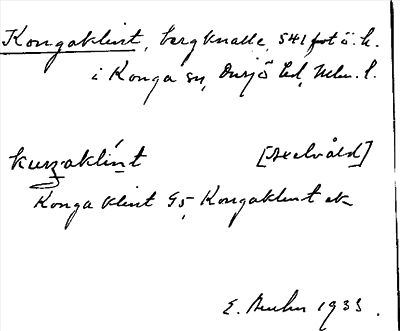 Kongaklint, bergknalle, 541 fot ö. h.
i Konga sn, Onsjö hd, Mlm. l.
kuŋzaklínt [Axelvåld]
Konga klint G5, Kongaklint ek
E. 1933.